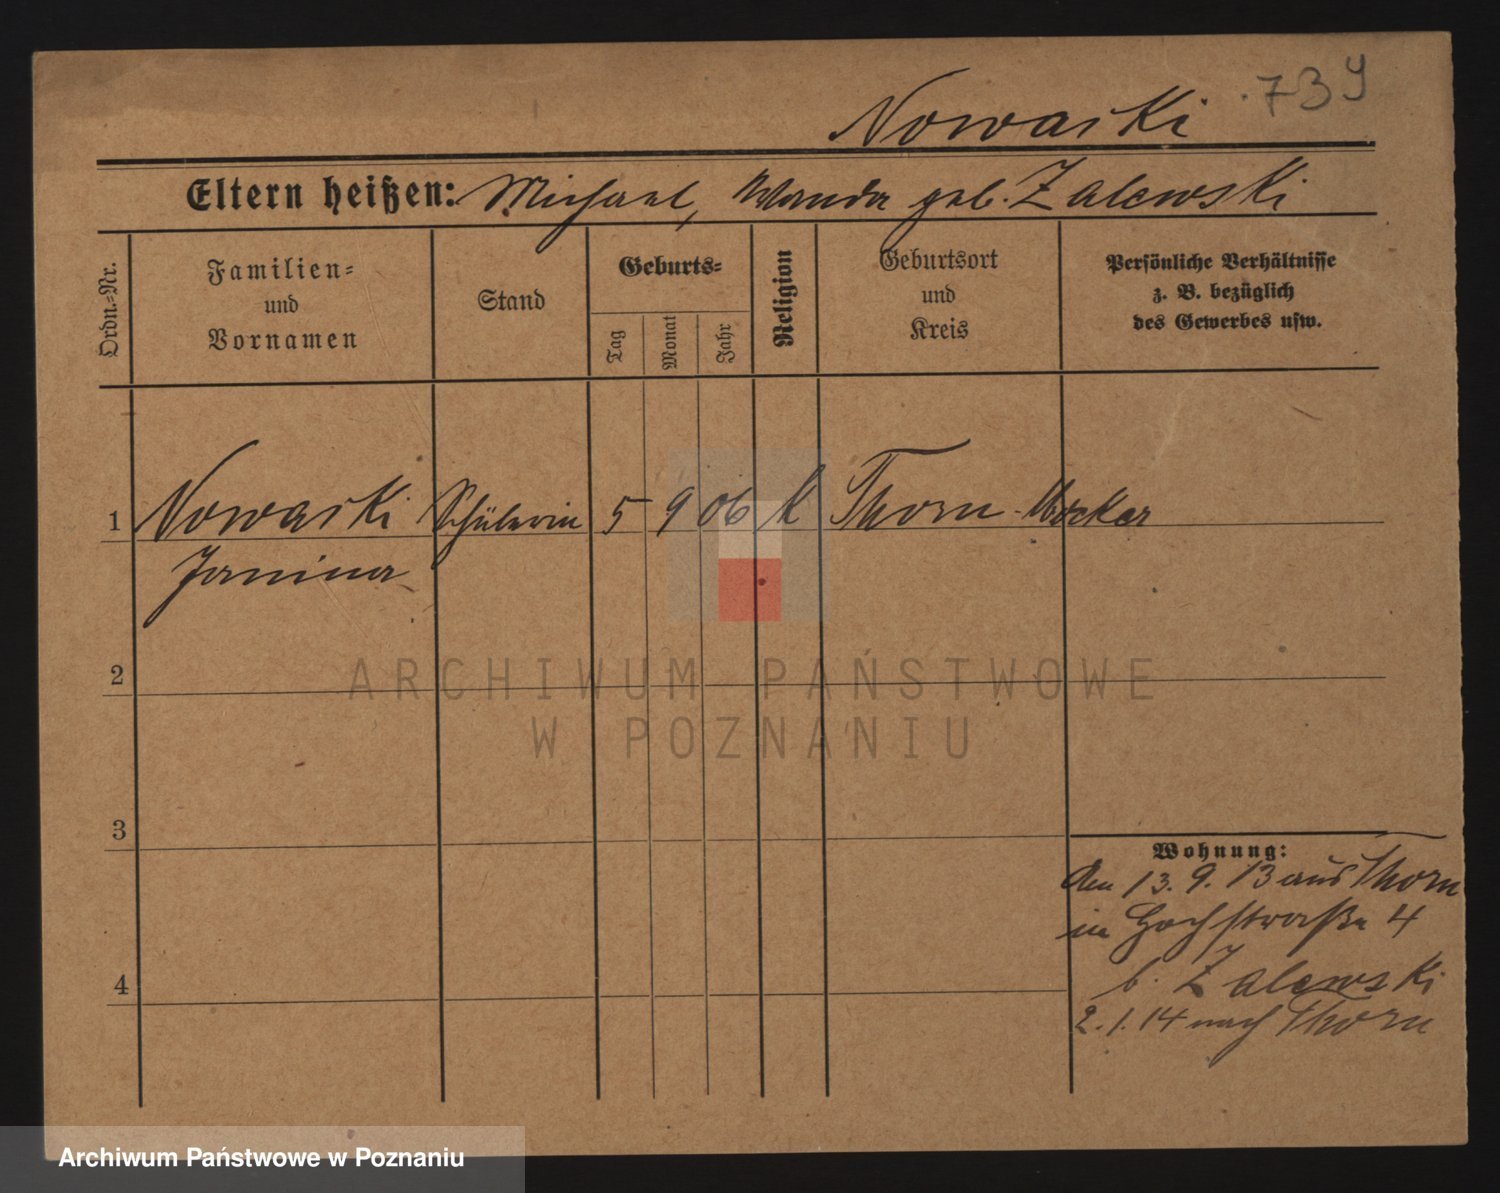 739
Nowaski
Eltern heißen: Michael, Wanda geb. Zalewski
Ordn.=Nr.
Familien=
und
Vornamen
Stand
Geburts=
Tag
Monat
Jahr
Religion
Geburtsort
und
Kreis
Persönliche Verhältnisse
z. B. bezüglich
des Gewerbes usw.
1 Nowaski Schülerin 5 9 06 K Thorn-Mocker
Janina
2
ARCHIWUM PAŃSTWOWE
W POZNANIU
3
Wohnung:
den 13. 9. 13 aus Thorn
in Hochstraße 4
b. Zalewski
4
2. 1. 14 nach Thorn
Archiwum Państwowe w Poznaniu